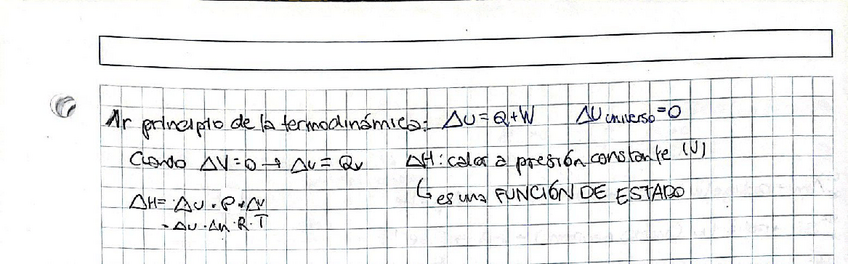 1r principio de la termodinámica: ΔU = Q + W ΔU universo = 0
Cuando ΔV = 0 → ΔU = Qv ΔH: calor a presión constante (J)
↳ es una FUNCIÓN DE ESTADO
ΔH = ΔU · P · ΔV
= ΔU · Δn · R · T